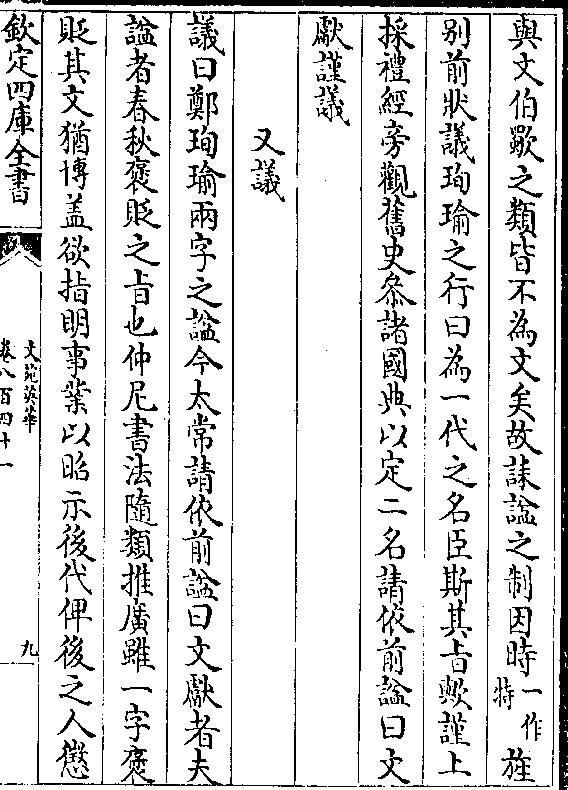 與文伯歜之類皆不為文矣故誄諡之制因時一作特旌
别前狀議珣瑜之行曰為一代之名臣斯其旨歟謹上
採禮經旁觀舊史叅諸國典以定二名請依前諡曰文
獻謹議
又議
議曰鄭珣瑜兩字之諡今太常請依前諡曰文獻者夫
諡者春秋褒貶之旨也仲尼書法隨類推廣雖一字褒
貶其文猶博盖欲指明事業以昭示後代俾後之人懲
欽定四庫全書
文苑英華
卷八百四十一
九